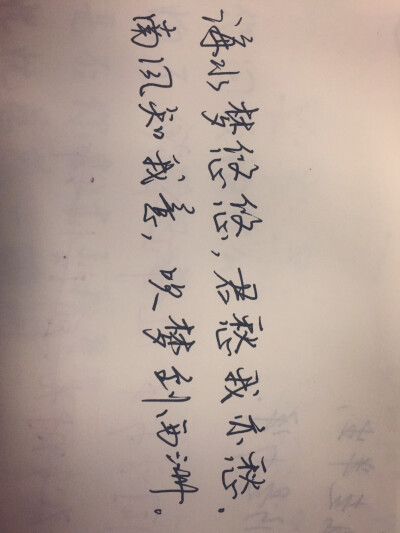 海水梦悠悠，君愁我亦愁.
南风知我意，吹梦到西洲。